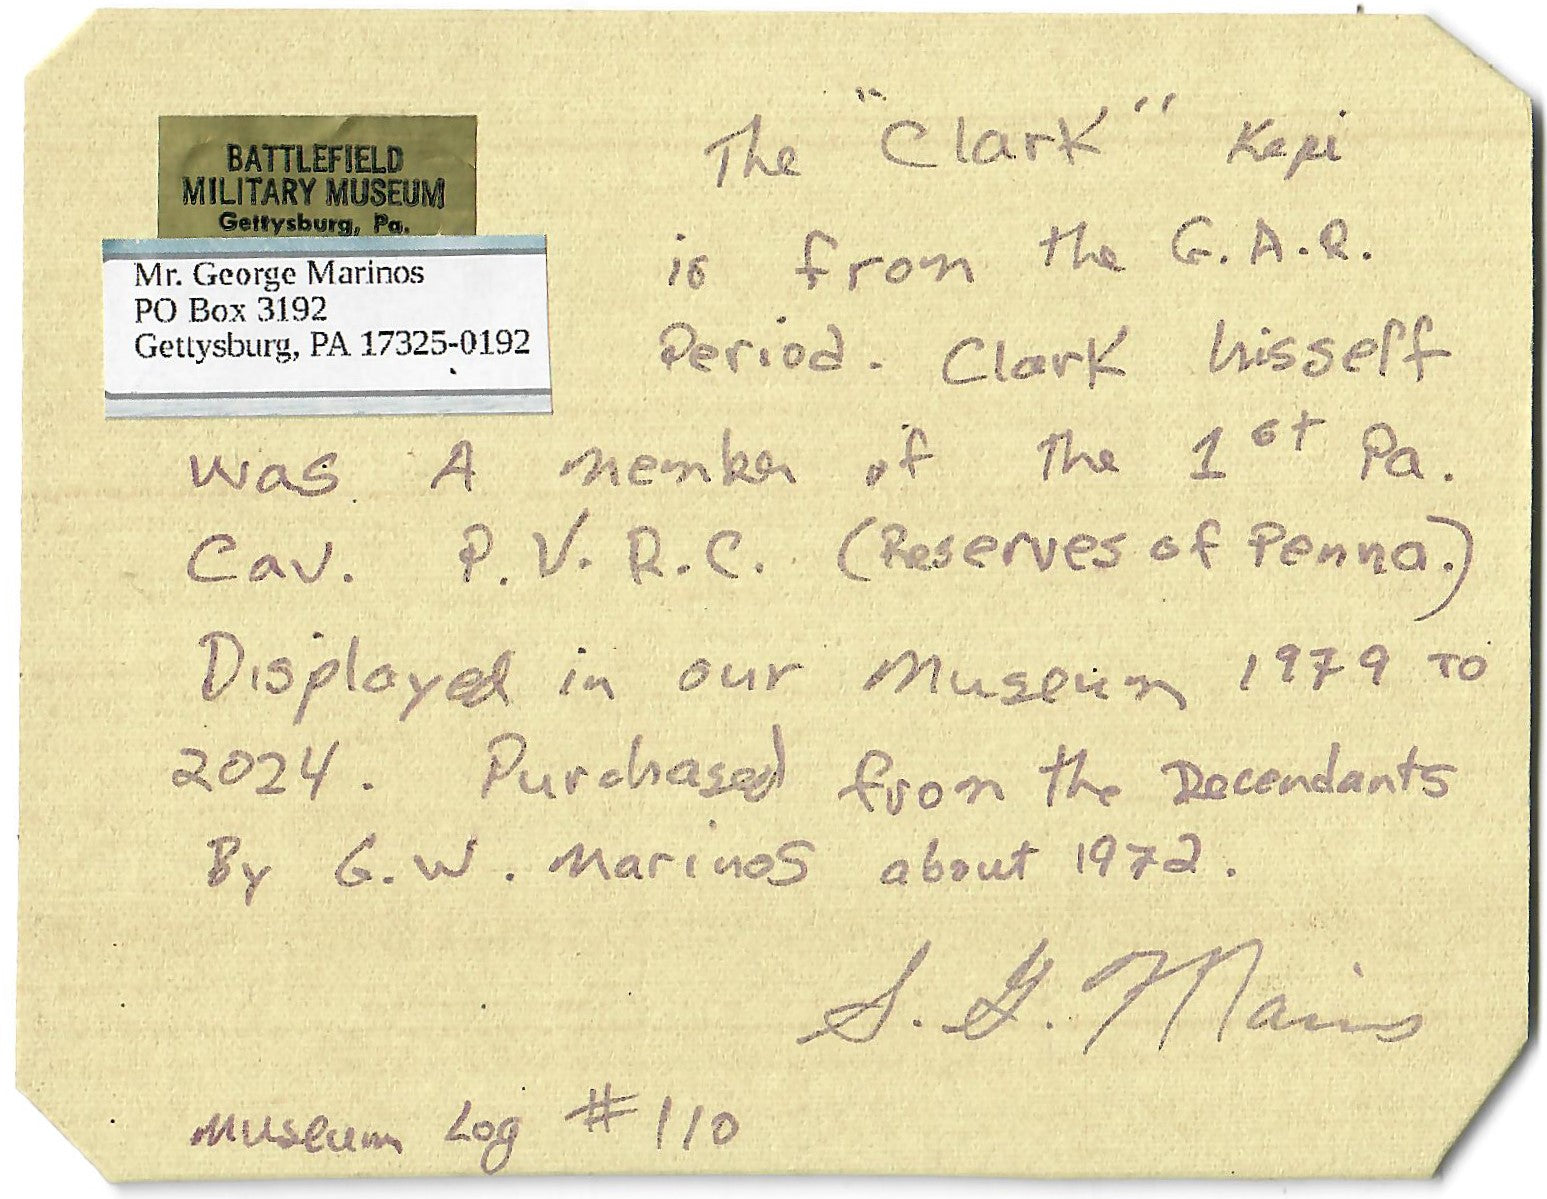 BATTLEFIELD
MILITARY MUSEUM
Gettysburg, Pa.
Mr. George Marinos
PO Box 3192
Gettysburg, PA 17325-0192
The "Clark" Kepi
is from the G.A.R.
Period. Clark hisself
was A member of the 1st Pa.
Cav. P.V.R.C. (Reserves of Penna.)
Displayed in our Museum 1979 TO
2024. Purchased from the Decendants
By G.W. Marinos about 1972.
S. G. Marinos
Museum Log #110